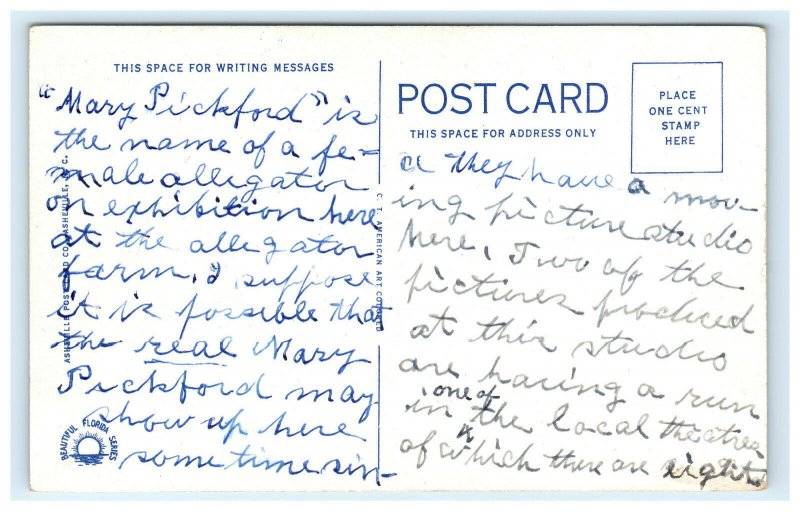 THIS SPACE FOR WRITING MESSAGES
"Mary Pickford" is
the name of a fe=
male allegator
on exhibition here
at the allegator
farm. I suppose
it is possible that
the real Mary
Pickford may
show up here
sometime sin-
BEAUTIFUL FLORIDA SERIES
ASHEVILLE POST CARD CO., ASHEVILLE, N. C.
C. T. AMERICAN ART COLORED
POST CARD
THIS SPACE FOR ADDRESS ONLY
PLACE
ONE CENT
STAMP
HERE
they have a mov-
ing picture studio
here. Two of the
pictures produced
at this studio
are having a run
in one of the local theatres
of which there are eight